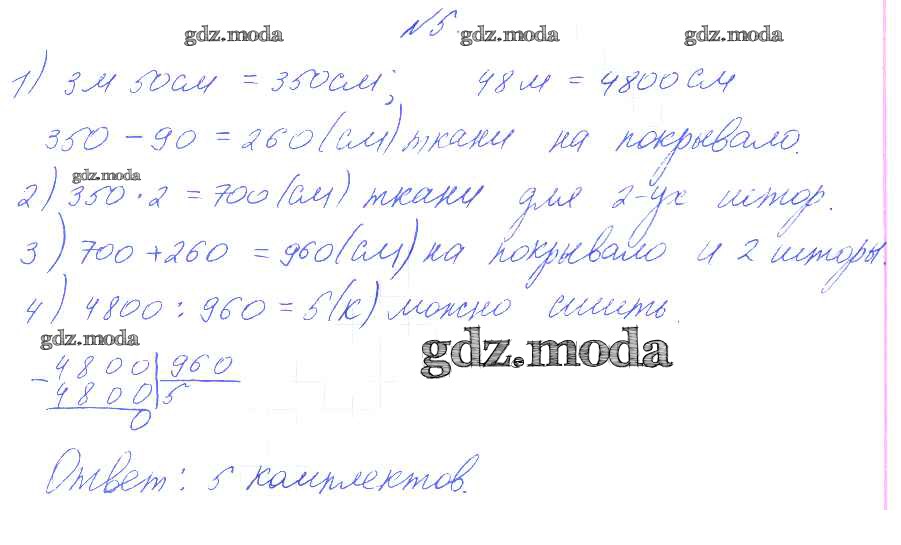 №5
gdz.moda gdz.moda gdz.moda
1) 3м 50см = 350см; 48м = 4800см
350 - 90 = 260(см) ткани на покрывало.
gdz.moda
2) 350 · 2 = 700(см) ткани для 2-ух штор.
3) 700 + 260 = 960(см) на покрывало и 2 шторы.
4) 4800 : 960 = 5(к) можно сшить
gdz.moda gdz.moda
- 4800 | 960
4800 | 5
0
Ответ: 5 комплектов.